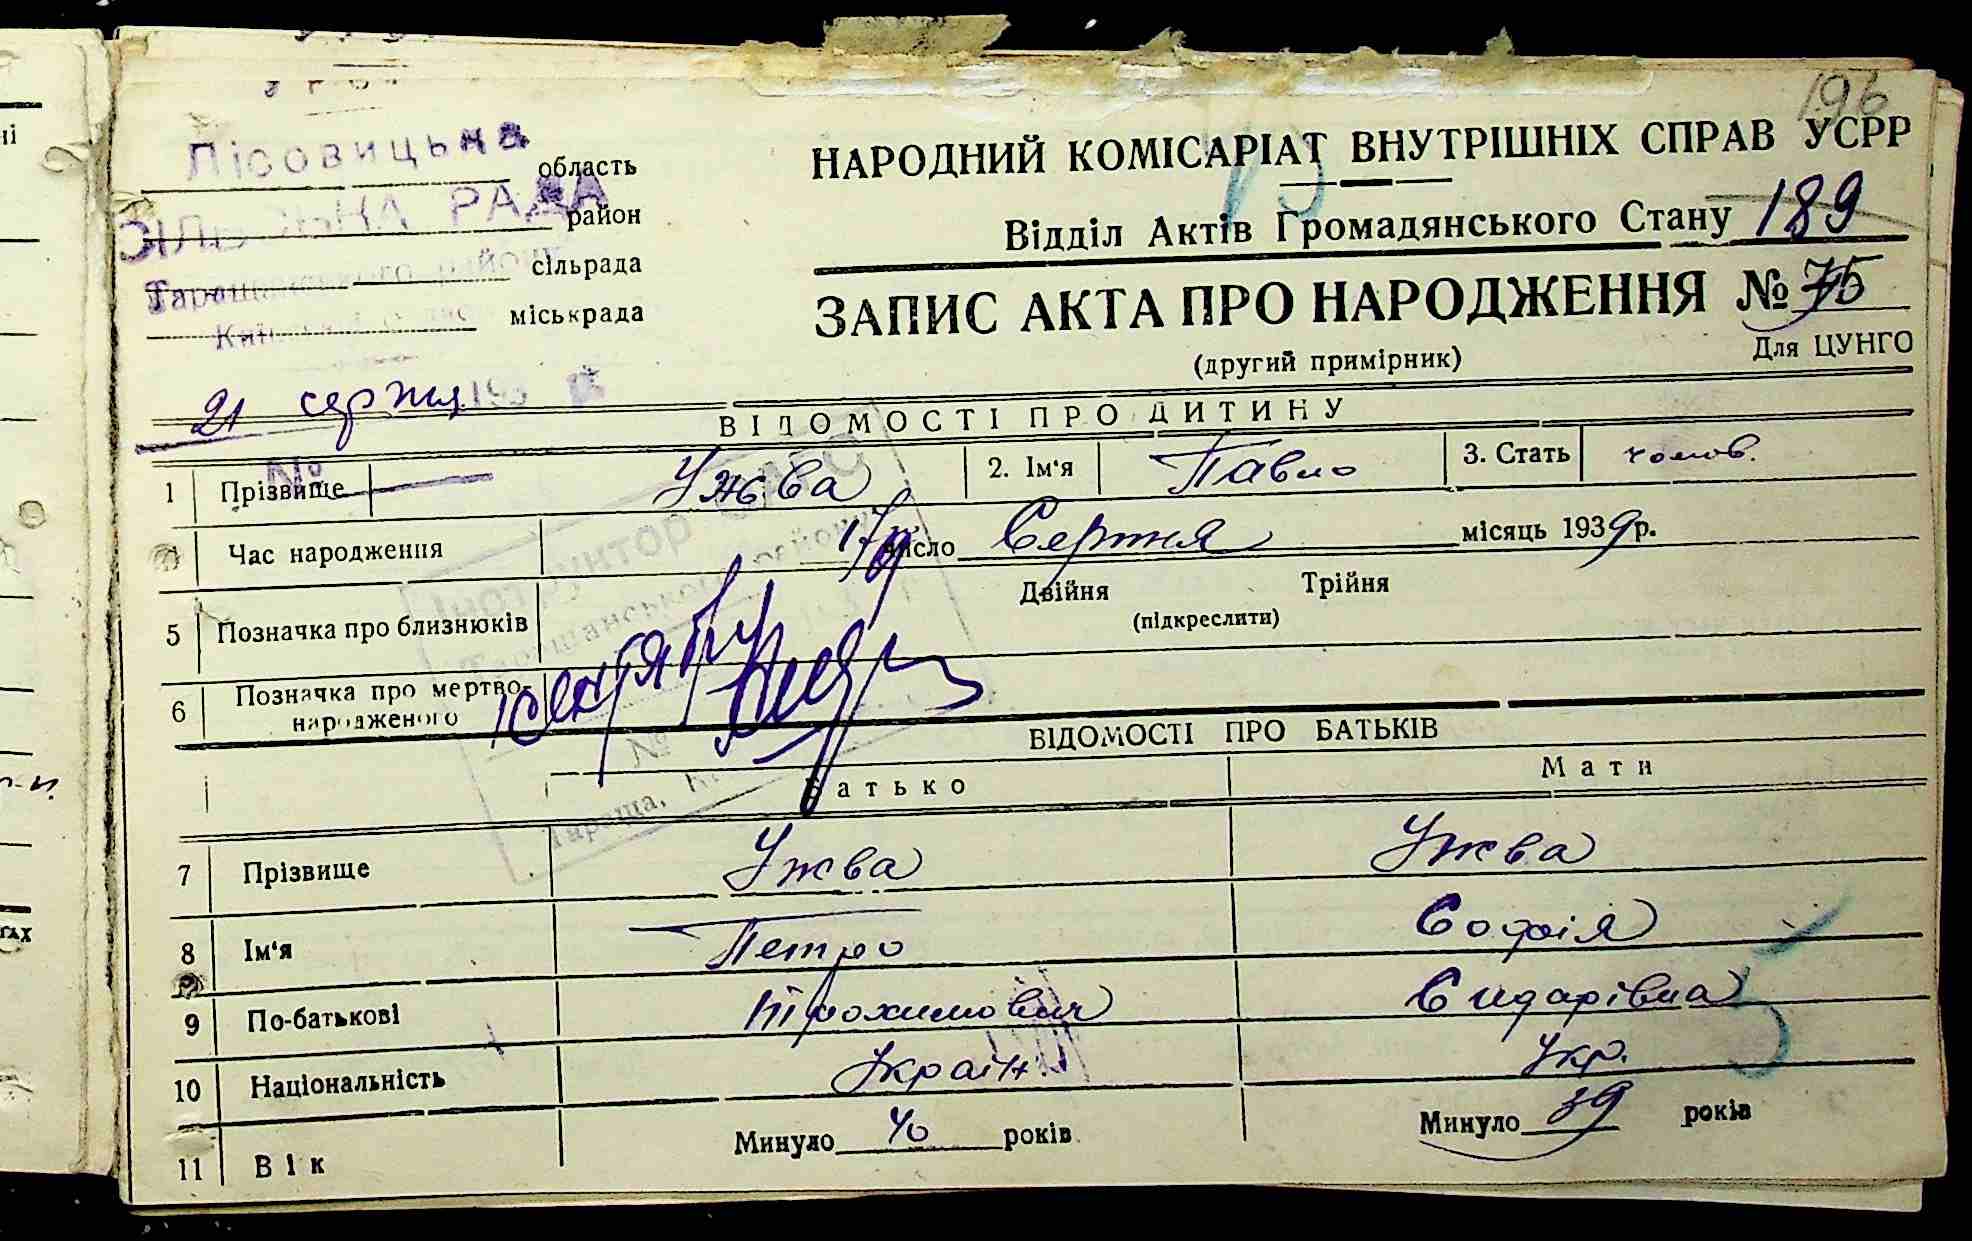 196
Лісовицька
область
СІЛЬСЬКА РАДА
район
Таращанського району
сільрада
міськрада
21 серпня 193
№
НАРОДНИЙ КОМІСАРІАТ ВНУТРІШНІХ СПРАВ УСРР
Відділ Актів Громадянського Стану 189
ЗАПИС АКТА ПРО НАРОДЖЕННЯ № 75
(другий примірник)
Для ЦУНГО
ВІДОМОСТІ ПРО ДИТИНУ
1 Прізвище Ужва 2. Ім'я Павло 3. Стать чолов.
Час народження 17 число Серпня місяць 1939 р.
5 Позначка про близнюків Двійня Трійня
(підкреслити)
6 Позначка про мертво-
народженого
ВІДОМОСТІ ПРО БАТЬКІВ
Батько Мати
7 Прізвище Ужва Ужва
8 Ім'я Петро Софія
9 По-батькові Трохимович Сидарівна
10 Національність Україн Укр.
11 Вік Минуло 40 років Минуло 39 років